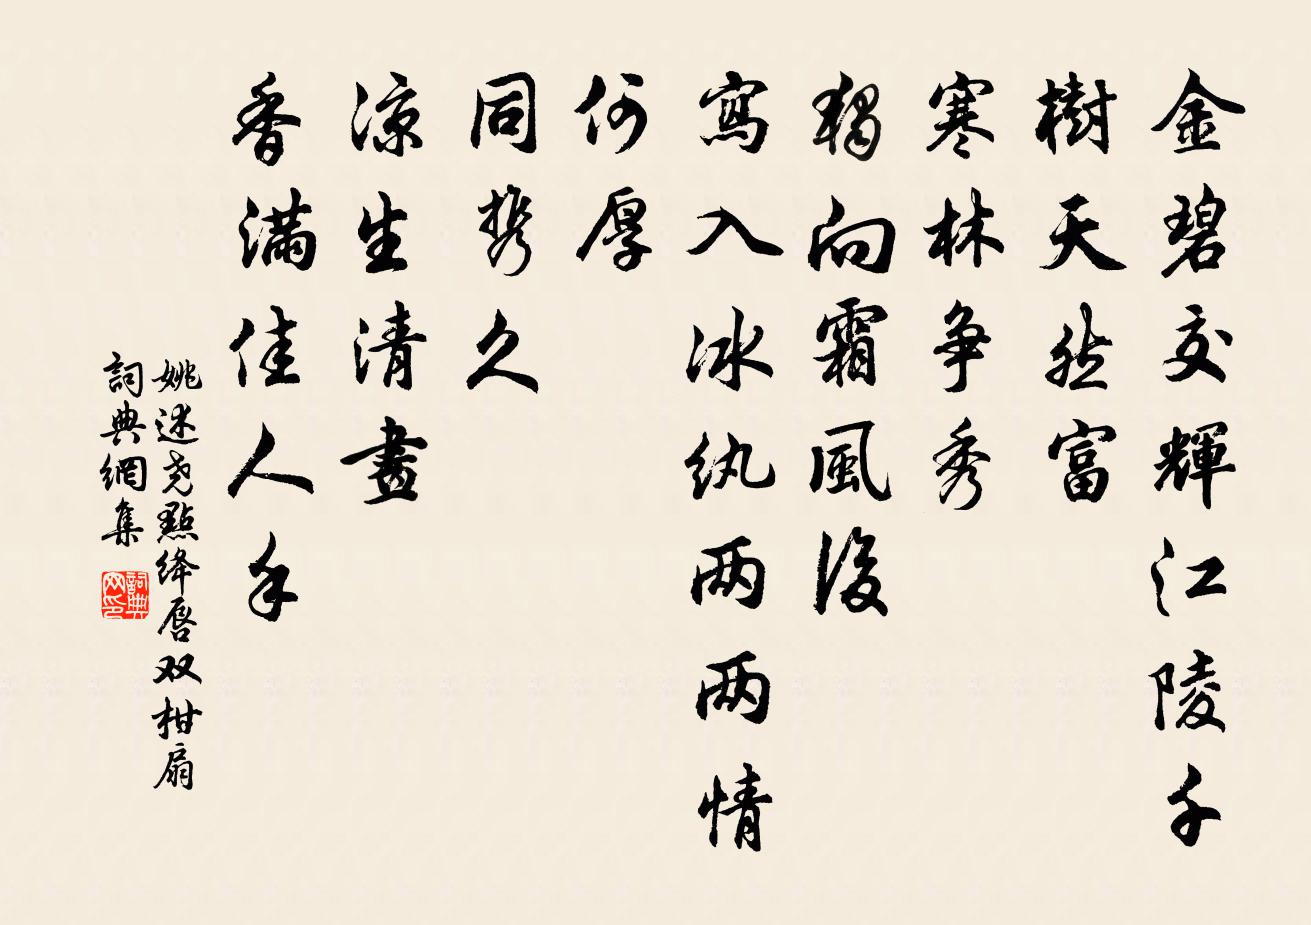 金碧交輝江陵千
樹天然富
寒林争秀
獨向霜風後
寫入冰紈两两情
何厚
同携久
凉生清晝
香滿佳人手
姚述尧點绛唇双柑扇
詞典網集
詞典网印